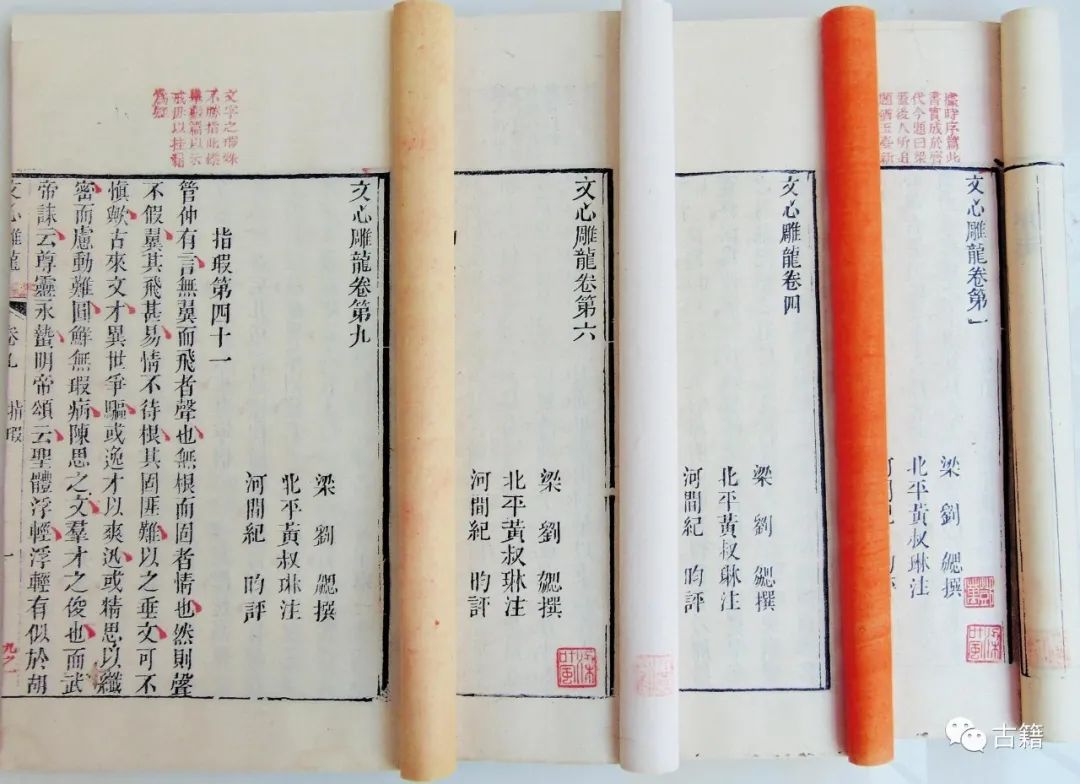 據時序篇此
書實成於齊
代今題曰梁
蓋後人所追
題猶玉臺新
文心雕龍卷第一
梁 劉 勰 撰
北平黃叔琳注
文心雕龍卷四
梁 劉 勰 撰
北平黃叔琳注
河間紀 昀評
文心雕龍卷第六
梁 劉 勰 撰
北平黃叔琳注
河間紀 昀評
文字之瑕殊
不勝指此標
文心雕龍卷第九
梁 劉 勰 撰
北平黃叔琳注
河間紀 昀評
指瑕第四十一
管仲有言無翼而飛者聲也無根而固者情也然則聲
不假翼其飛甚易情不待根其固匪難以之垂文可不
慎歟古來文才異世爭驅或逸才以爽迅或精思以纖
密而慮動難圓鮮無瑕病陳思之文羣才之俊也而武
帝誄云尊靈永蟄明帝頌云聖體浮輕浮輕有似於胡
文心雕龍 卷九 指瑕 一
古籍